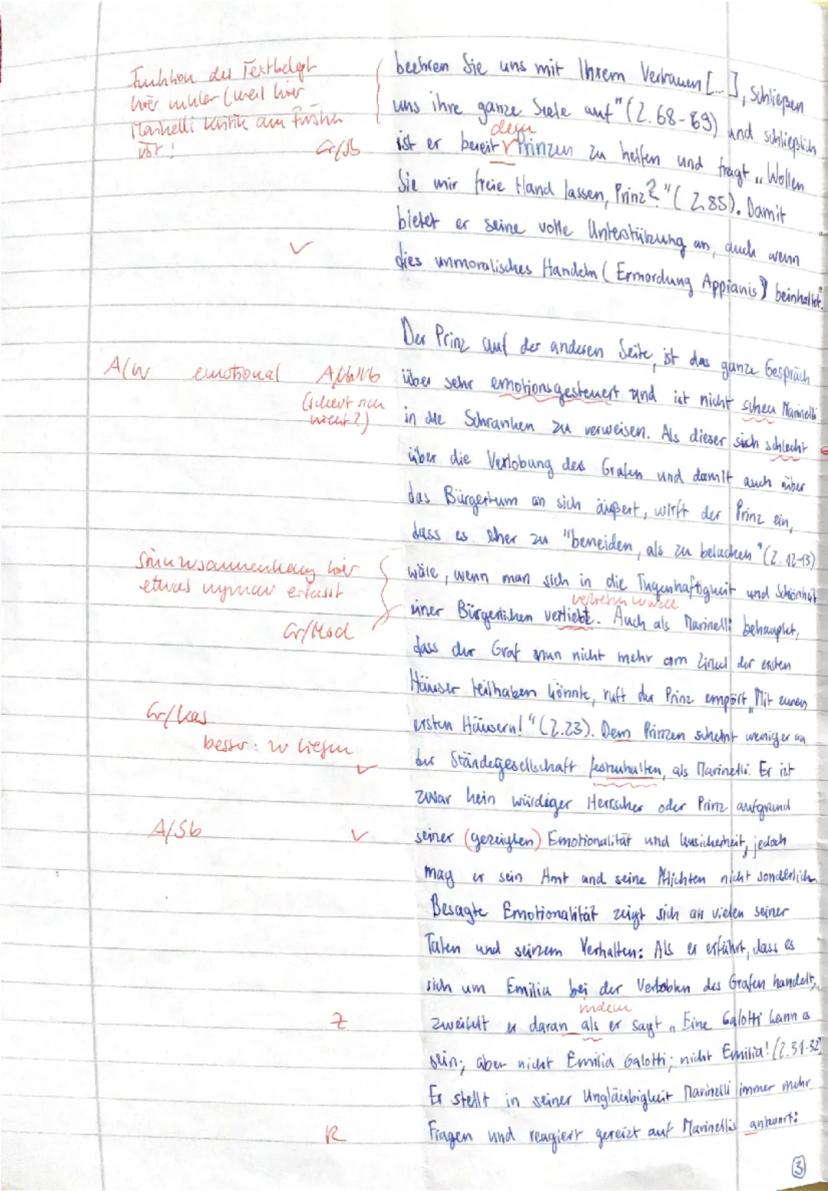 Funktion des Textbelegs
hier unklar (weil hier
Marinelli Kritik am Fürsten
übt!
Gr/Sb
beehren Sie uns mit Ihrem Vertrauen [...], schließen
uns ihre ganze Seele auf" (Z. 68-69) und schließlich
dem
ist er bereit Prinzen zu helfen und fragt „Wollen
Sie mir freie Hand lassen, Prinz?" (Z. 85). Damit
bietet er seine volle Unterstützung an, auch wenn
dies unmoralisches Handeln (Ermordung Appianis) beinhaltet.
Der Prinz auf der anderen Seite, ist das ganze Gespräch
A/W emotional
(schert sich
nicht?)
über sehr emotionsgesteuert und ist nicht scheu Marinelli
in die Schranken zu verweisen. Als dieser sich schlecht
über die Verlobung des Grafen und damit auch über
das Bürgertum an sich äußert, wirft der Prinz ein,
dass es eher zu "beneiden, als zu belachen" (Z. 12-13)
Sinnzusammenhang hier
etwas ungenau erfasst
Gr/Mod
wäre, wenn man sich in die Tugenhaftigkeit und Schönheit
einer Bürgerlichen verliebt. Auch als Marinelli behauptet,
dass der Graf nun nicht mehr am Zirkel der ersten
Häuser teilhaben könnte, ruft der Prinz empört „Mit euren
Gr/Kas
besser: zu liegen
ersten Häusern!" (Z. 23). Dem Prinzen scheint weniger an
der Ständegesellschaft festzuhalten, als Marinelli. Er ist
zwar kein würdiger Herrscher oder Prinz aufgrund
A/Sb
seiner (gezeigten) Emotionalität und Unsicherheit, jedoch
mag er sein Amt und seine Pflichten nicht sonderlich.
Besagte Emotionalität zeigt sich an vielen seiner
Taten und seinem Verhalten: Als er erfährt, dass es
sich um Emilia bei der Verlobten des Grafen handelt,
indem
Z
zweifelt er daran als er sagt „Eine Galotti kann es
sein; aber nicht Emilia Galotti; nicht Emilia! (Z. 31-32)
Er stellt in seiner Ungläubigkeit Marinelli immer mehr
R
Fragen und reagiert gereizt auf Marinellis antwort:
3